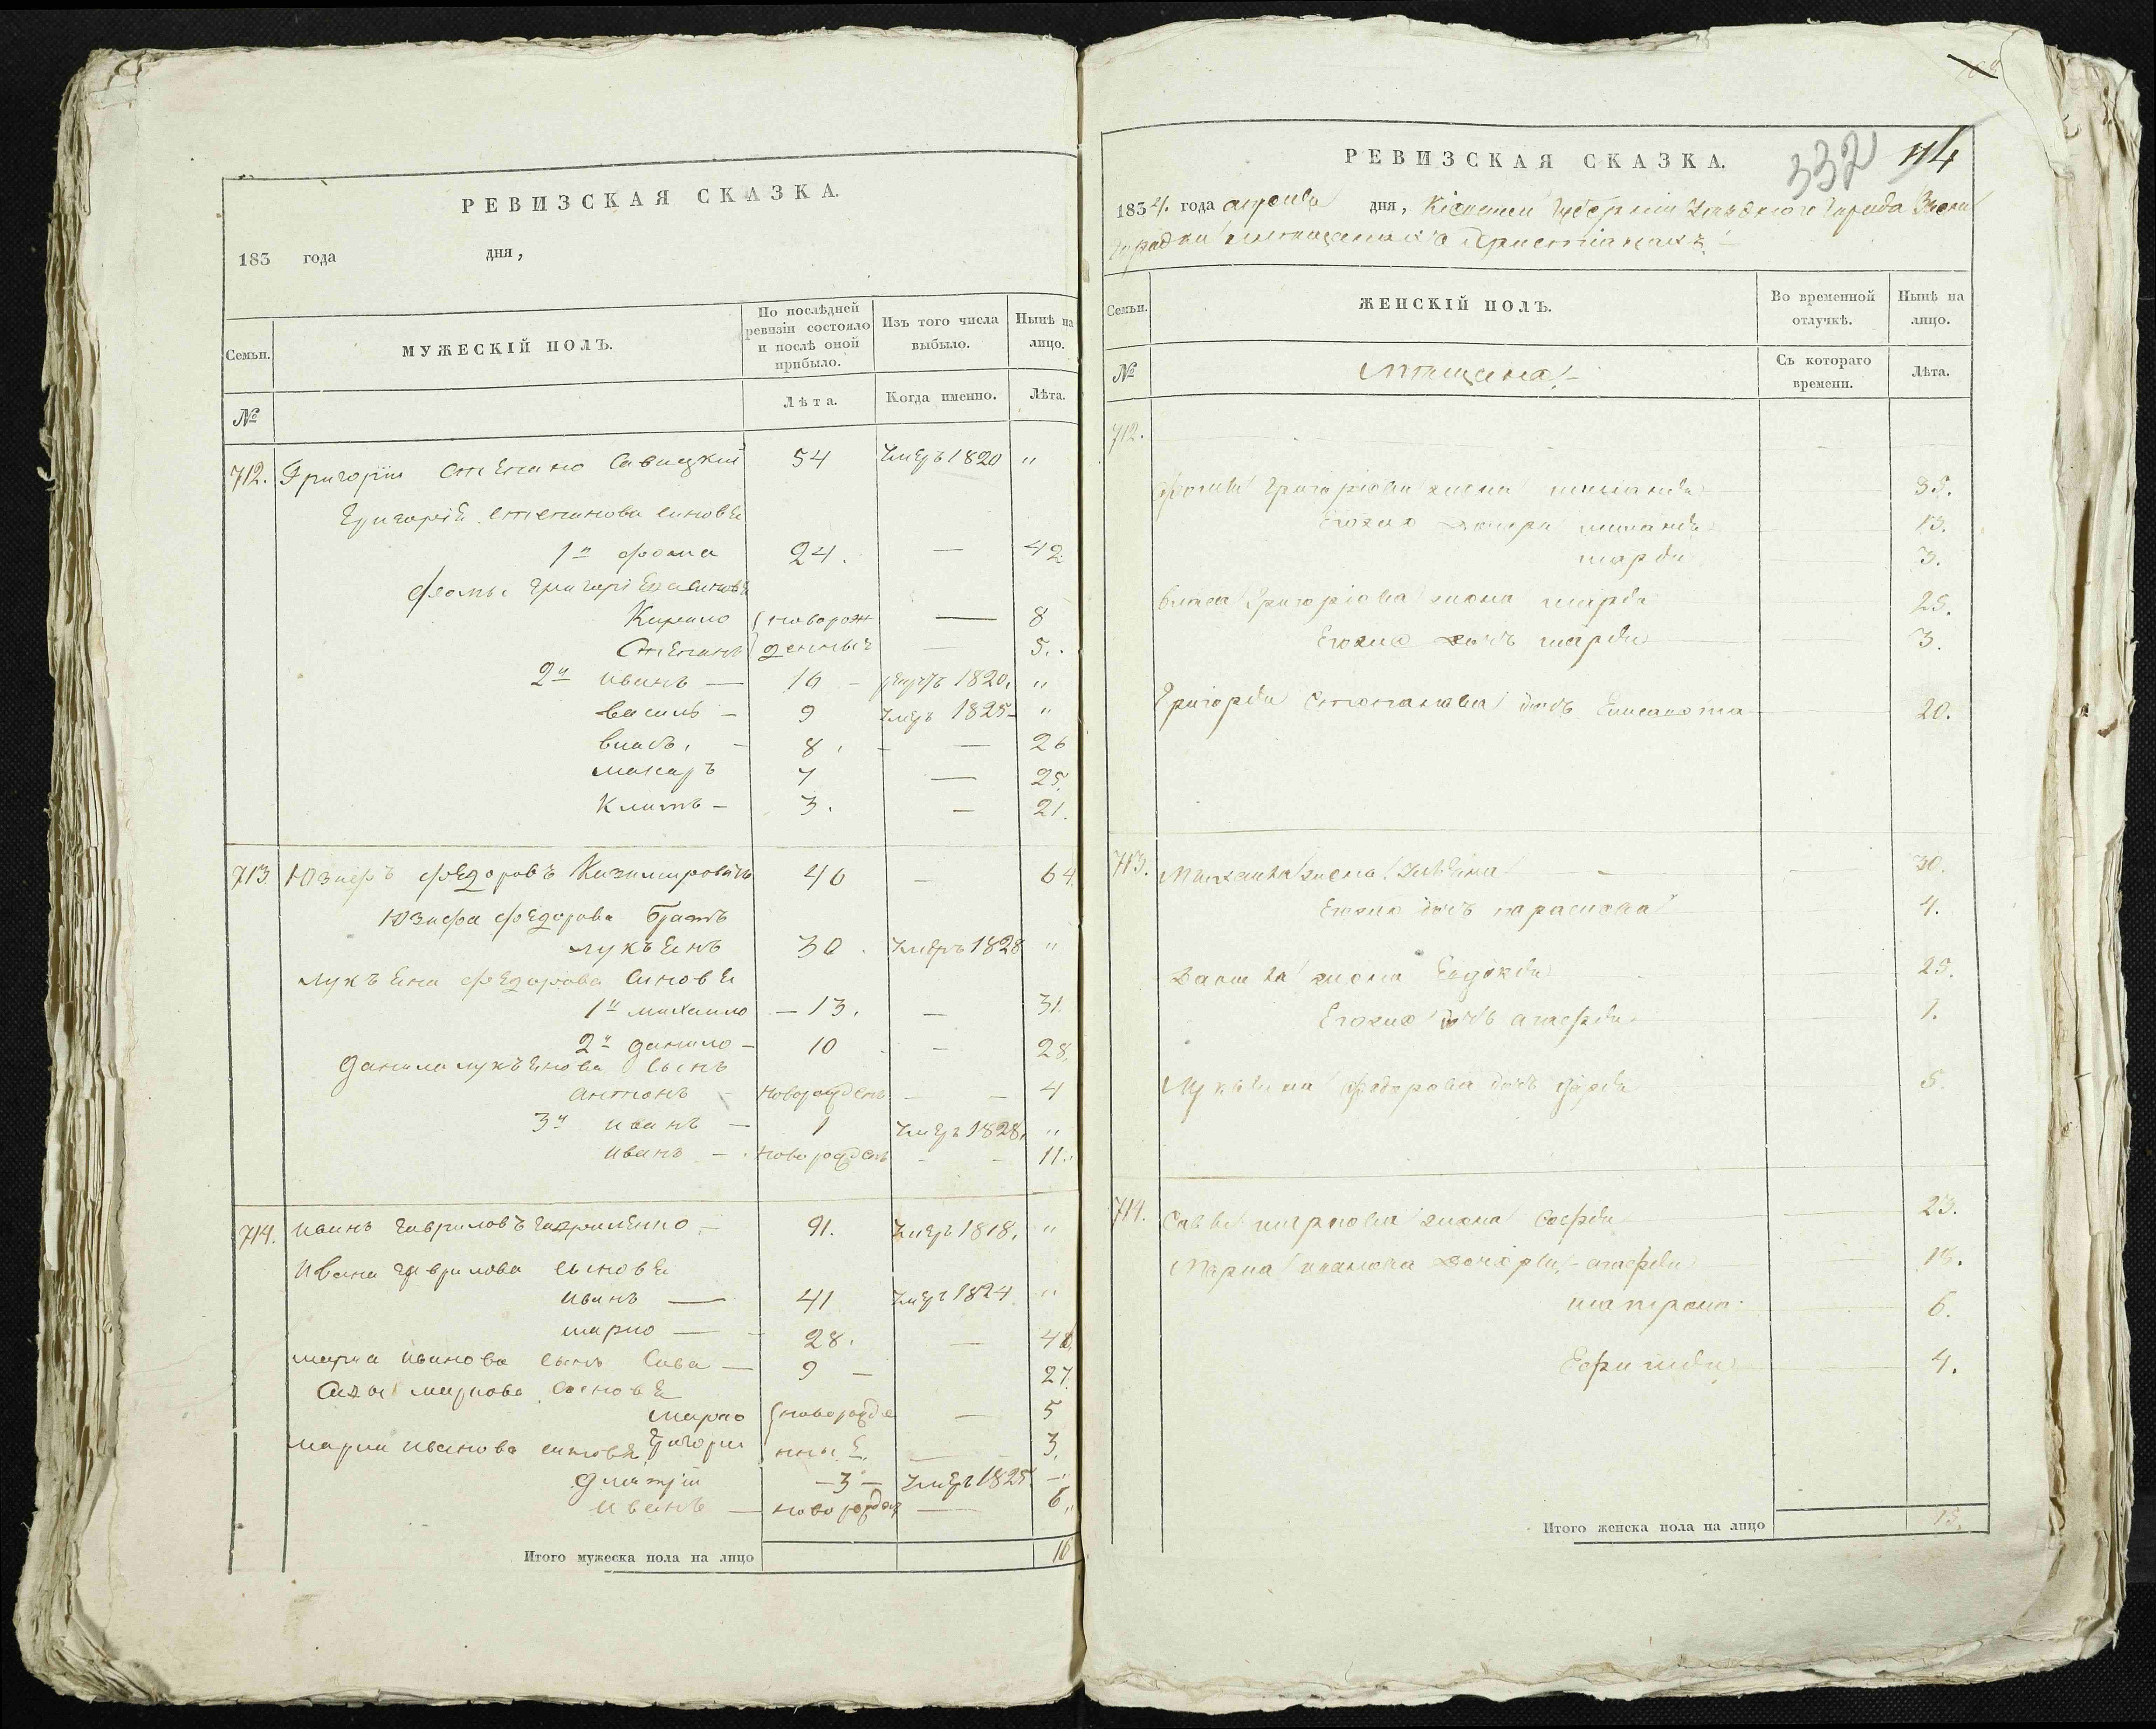 РЕВИЗСКАЯ СКАЗКА.
183 года дня,
Семьи.
МУЖЕСКІЙ ПОЛЪ.
По послѣдней ревизіи состояло и послѣ оной прибыло.
Изъ того числа выбыло.
Нынѣ на лицо.
№
Лѣта.
Когда именно.
Лѣта.
712. Григорій Степано Савицкій 54 Умеръ 1820 "
Григорія Степанова синовя
1й Фома 24. — 42
Фомы Григоріева синовя
Кирило новорож — 8
Степанъ денныя — 5.
2й Иванъ — 16 — 1820. "
Василь — 9 Умеръ 1825 — "
Власъ. — 8. — 26
Макаръ 7 — 25.
Климъ — 3. — 21.
713. Юзифъ Федоровъ Казимировичь 46 — 64.
Юзифа Федорова братъ
Лукъянъ 30. Умеръ 1828 "
Лукъяна Федорова Синовя
1й Михаило — 13. — 31.
2й Данило — 10 — 28.
Данила Лукъянова Сынъ
Антонъ — новорожденъ — 4
3й Иванъ — 1 Умеръ 1828. "
Иванъ — новорожденъ — 11.
714. Иванъ Гавриловъ Гавриленко — 91. Умеръ 1818. "
Ивана Гаврилова сыновя
Иванъ — 41 Умеръ 1824 "
Марко — 28. —
Марка Иванова сынъ Сава — 9 — 27.
Савы Маркова сыновя
Марко новорожде — 5
Марка Иванова синовя Григори нныя 3.
Дмитрій — 3 — Умеръ 1825. "
Иванъ — новорожден — 6.
Итого мужеска пола на лицо 16
332
114
РЕВИЗСКАЯ СКАЗКА.
1834. года апреля дня, Кіевской Губерніи Уезднаго Города Звени
городки мещанахъ Христіанахъ
Семьи.
ЖЕНСКІЙ ПОЛЪ.
Во временной отлучкѣ.
Нынѣ на лицо.
№
Мещане
Съ котораго времени.
Лѣта.
712.
Фомы Григоріева жена 35.
Егожъ дочери 13.
Марья 3.
Власа Григоріева жена Марья 25.
Егожъ дочь Марья 3.
Григорія Степанова дочь Елисавета 20.
713. Михаила жена 30.
Егожъ дочь Параскева 4.
Данила жена Евдокія 25.
Егожъ дочь Агафія 1.
Лукъяна Федорова дочь 5.
714. Савы Маркова жена Софія 23.
Марка Иванова дочери, — Агафія
Матрона 6.
4.
Итого женска пола на лицо 15.